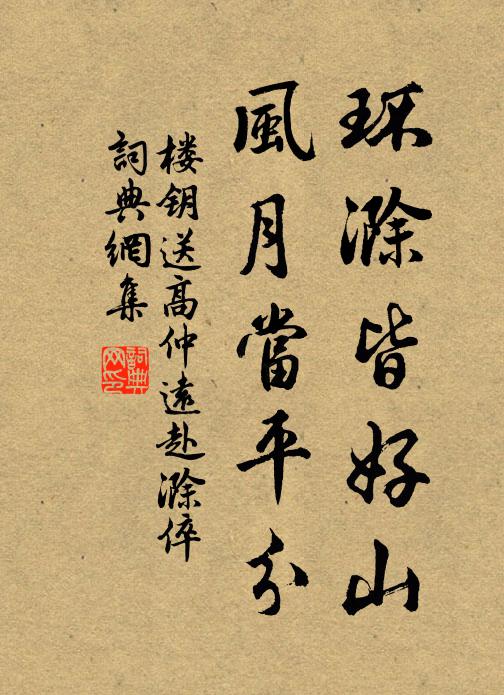 环滁皆好山
風月當平分
楼钥送高仲遠赴滁倅
詞典網集
詞典网印